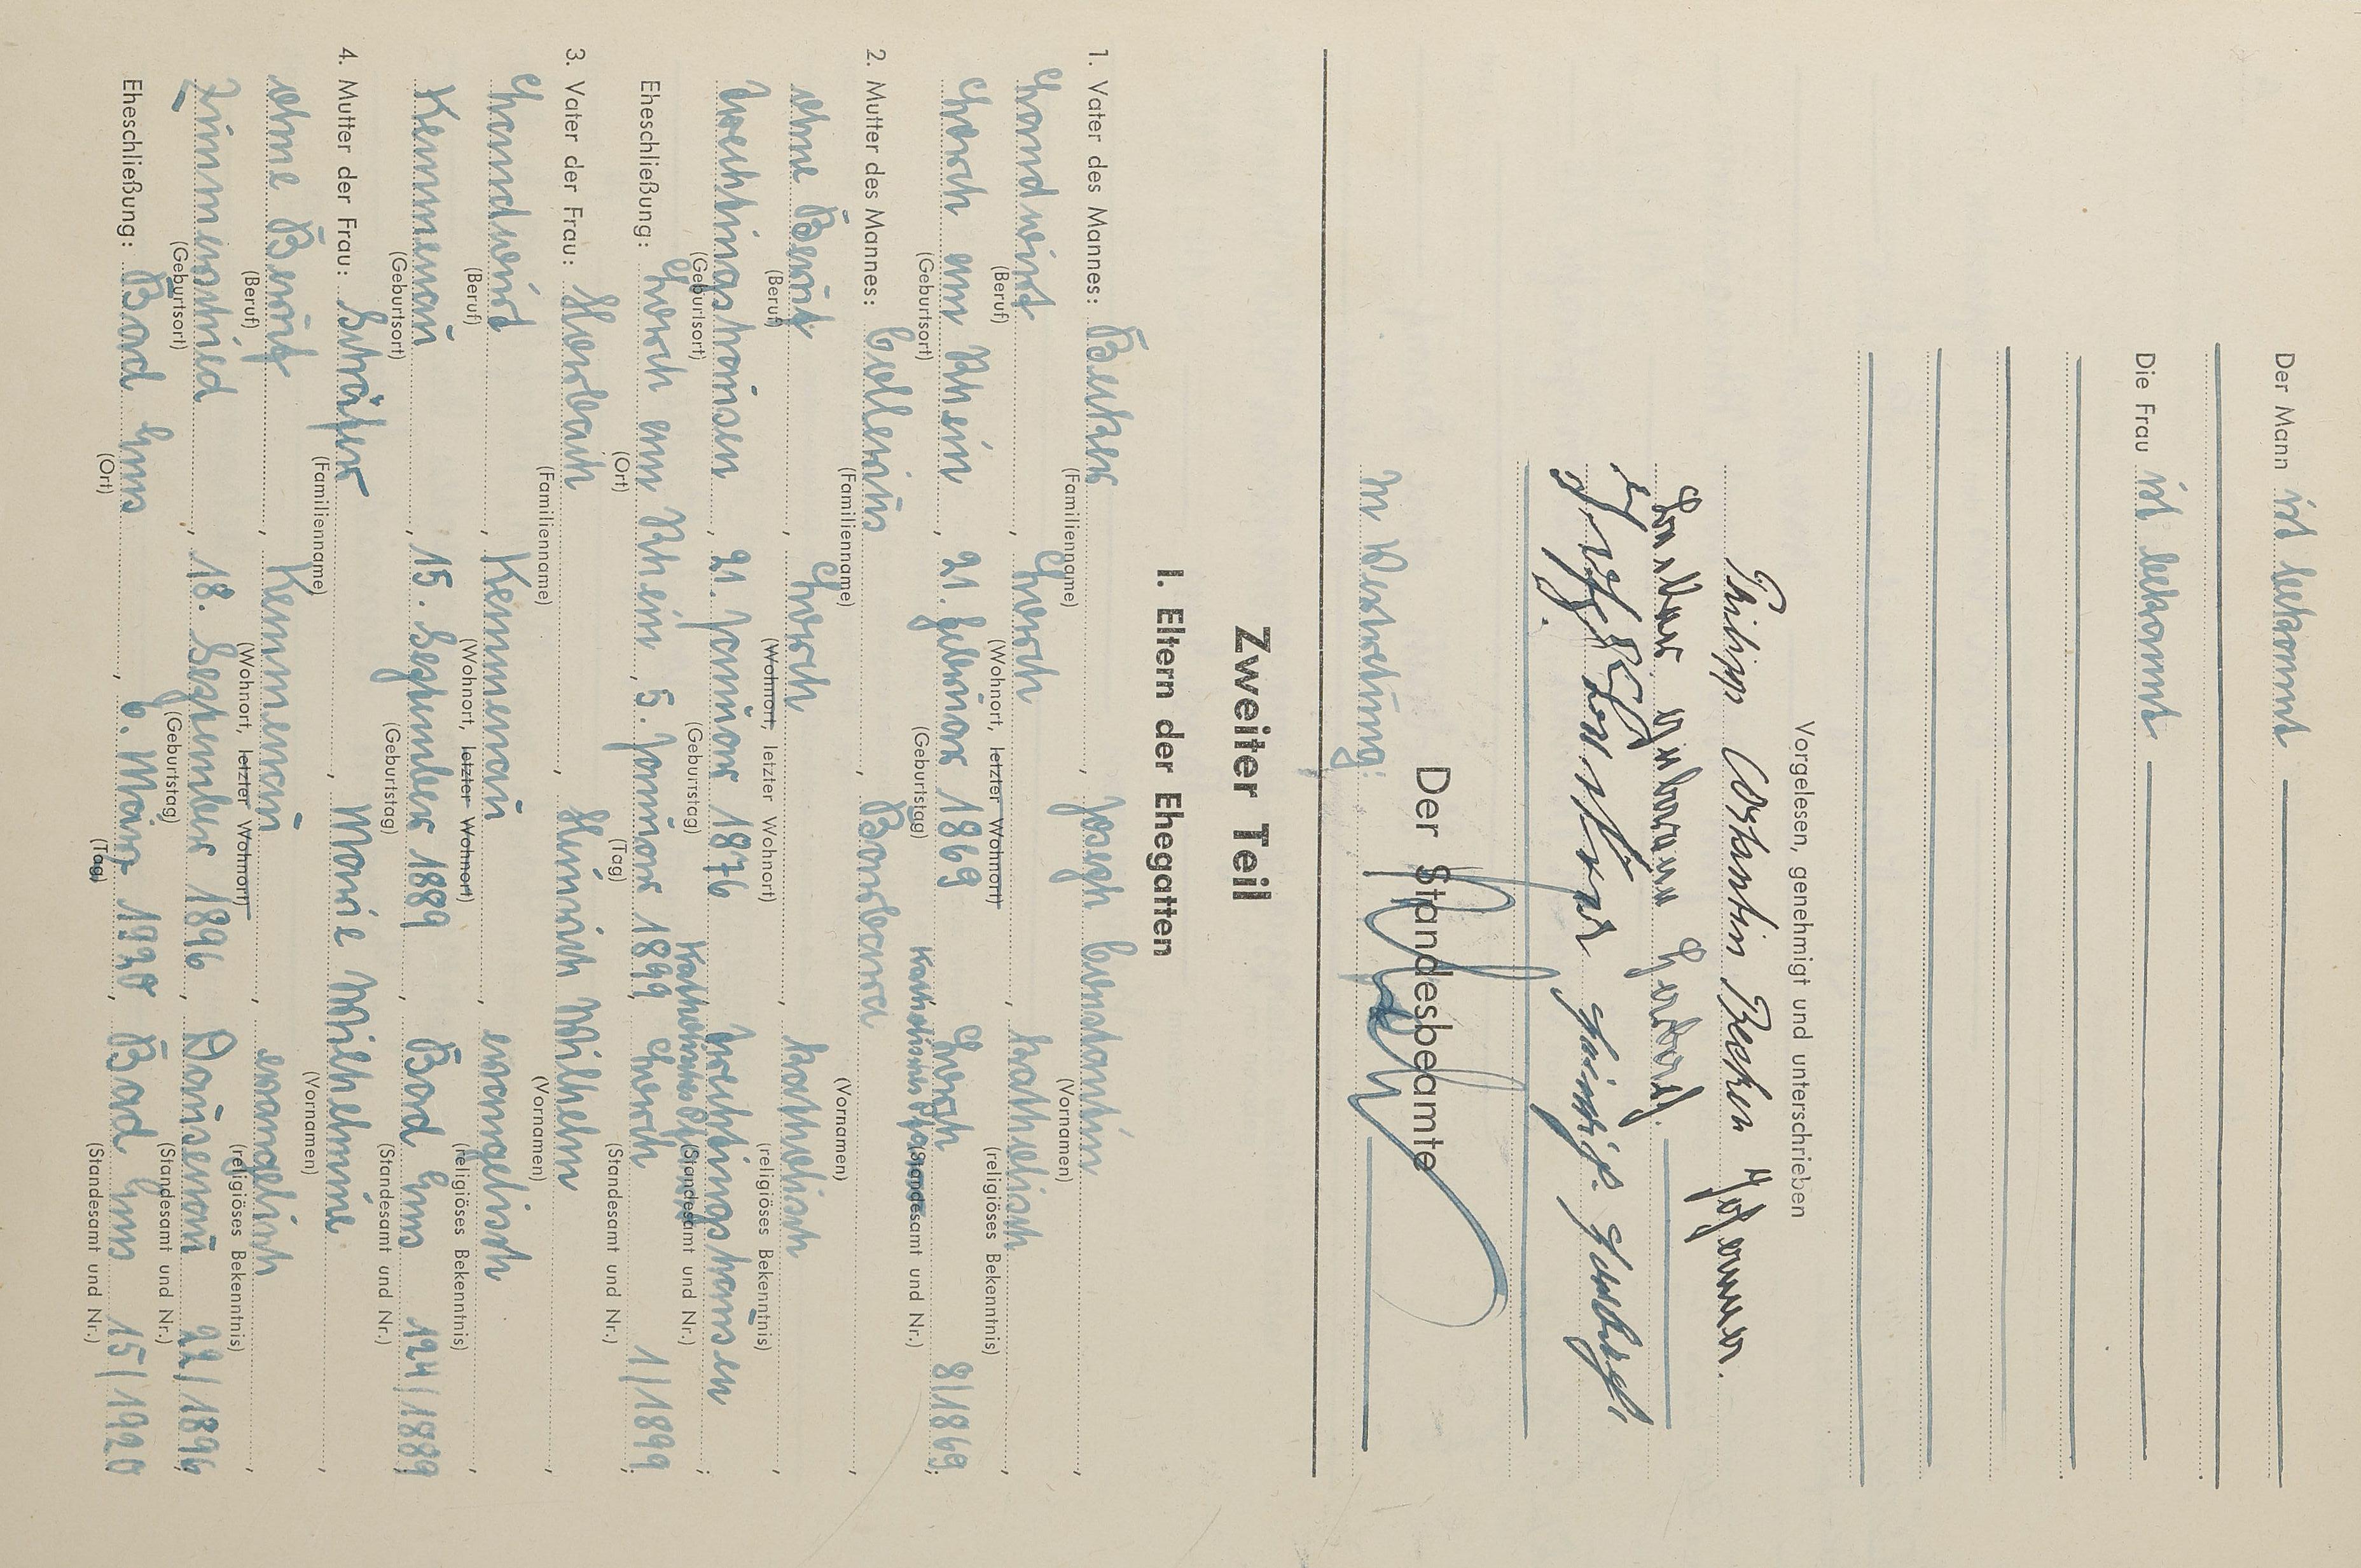 Der Mann ist bekannt
Die Frau ist bekannt
Vorgelesen, genehmigt und unterschrieben
Philipp Constantin Becker
geborene
Der Standesbeamte
In Vertretung:
Zweiter Teil
I. Eltern der Ehegatten
1. Vater des Mannes: Becker, Joseph Constantin,
(Familienname) (Vornamen)
Landwirt, Lorch, katholisch,
(Beruf) (Wohnort, letzter Wohnort) (religiöses Bekenntnis)
Lorch am Rhein, 21. Februar 1869 Lorch 8/1869;
(Geburtsort) (Geburtstag) (Standesamt und Nr.)
2. Mutter des Mannes: Barbara,
(Familienname) (Vornamen)
ohne Beruf, Lorch, katholisch,
(Beruf) (Wohnort, letzter Wohnort) (religiöses Bekenntnis)
Presberg 21. Januar 1876
(Geburtsort) (Geburtstag) (Standesamt und Nr.)
Eheschließung: Lorch am Rhein, 5. Januar 1899 Lorch 1/1899;
(Ort) (Tag) (Standesamt und Nr.)
3. Vater der Frau: Heinrich Wilhelm,
(Familienname) (Vornamen)
Landwirt, Kemmenau, evangelisch,
(Beruf) (Wohnort, letzter Wohnort) (religiöses Bekenntnis)
Kemmenau, 15. September 1889, Bad Ems 124/1889;
(Geburtsort) (Geburtstag) (Standesamt und Nr.)
4. Mutter der Frau: Schäfer, Marie Wilhelmine,
(Familienname) (Vornamen)
ohne Beruf, Kemmenau, evangelisch,
(Beruf) (Wohnort, letzter Wohnort) (religiöses Bekenntnis)
Zimmerschied, 18. September 1896, Dausenau 22/1896;
(Geburtsort) (Geburtstag) (Standesamt und Nr.)
Eheschließung: Bad Ems, 6. März 1920, Bad Ems 15/1920
(Ort) (Tag) (Standesamt und Nr.)